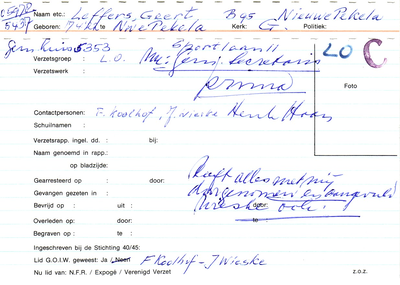 Naam etc.: Leffers, Geert, Bgs Nieuwe Pekela
Geboren: te Nwe Pekela Kerk: G. Politiek:
5353 Sportlaan 11
Verzetsgroep : L.O. LO C
Verzetswerk : prima
Foto
Contactpersonen: F. Koolhof, J. Wieske Henk Haan
Schuilnaam :
Verzetsrapp. ingel. dd. : bij:
Naam genoemd in rapp.:
op bladzijde:
Gearresteerd op : door: heeft alles met mij
Gevangen gezeten in : doorgenomen en aangevuld
Bevrijd op : uit : door: Wieske ook!
Overleden op : door: te
Begraven op : te :
Ingeschreven bij de Stichting 40/45:
Lid G.O.I.W. geweest: Ja / Neen F Koolhof - J Wieske
Nu lid van: N.F.R. / Expogé / Verenigd Verzet z.o.z.